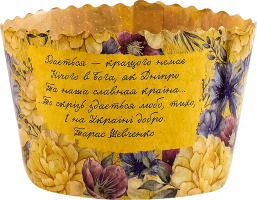 Здається — кращого немає
Нічого в Бога, як Дніпро
Та наша славная країна...
...То скрізь здається любо, тихо,
І на Україні добро
Тарас Шевченко